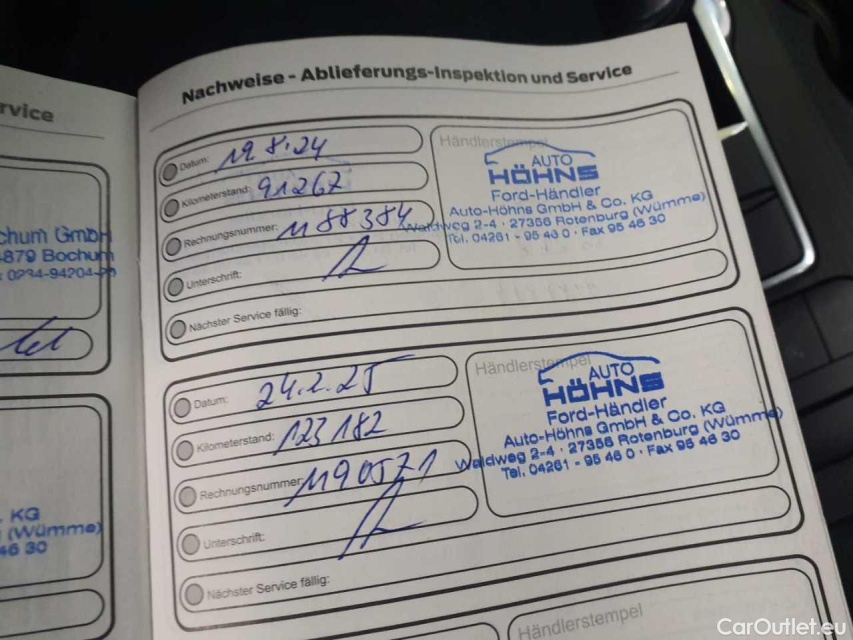 rvice
chum GmbH
4879 Bochum
0234-94204-20
KG
(Wümme)
46 30
Nachweise - Ablieferungs-Inspektion und Service
Datum: 19.8.24
Kilometerstand: 91267
Rechnungsnummer: 1188384
Unterschrift:
Nächster Service fällig:
Händlerstempel
AUTO
HÖHNS
Ford-Händler
Auto-Höhns GmbH & Co. KG
Waldweg 2-4 · 27356 Rotenburg (Wümme)
Tel. 04261 - 95 46 0 · Fax 95 46 30
Datum: 24.2.25
Kilometerstand: 123182
Rechnungsnummer: 1190571
Unterschrift:
Nächster Service fällig:
Händlerstempel
AUTO
HÖHNS
Ford-Händler
Auto-Höhns GmbH & Co. KG
Waldweg 2-4 · 27356 Rotenburg (Wümme)
Tel. 04261 - 95 46 0 · Fax 95 46 30
Händlerstempel
CarOutlet.eu